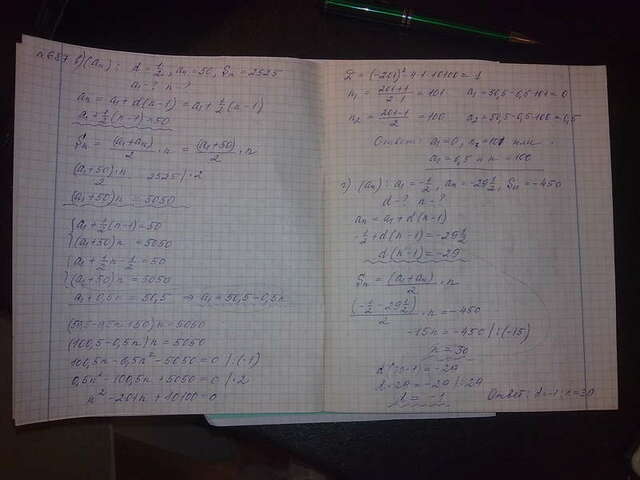 n 687. в) (aₙ): d = 1/2, aₙ = 50, Sₙ = 2525
a₁ - ? n - ?
aₙ = a₁ + d(n-1) = a₁ + 1/2(n-1)
a₁ + 1/2(n-1) = 50
Sₙ = (a₁+aₙ)/2 · n = (a₁+50)/2 · n
(a₁+50)·n/2 = 2525 | ·2
(a₁+50)n = 5050
{a₁ + 1/2(n-1) = 50
{(a₁+50)n = 5050
{a₁ + 1/2n - 1/2 = 50
{(a₁+50)n = 5050
a₁ + 0,5n = 50,5 ⇒ a₁ = 50,5 - 0,5n
(50,5 - 0,5n + 50)n = 5050
(100,5 - 0,5n)n = 5050
100,5n - 0,5n² - 5050 = 0 | ·(-1)
0,5n² - 100,5n + 5050 = 0 | ·2
n² - 201n + 10100 = 0
D = (-201)² - 4·1·10100 = 1
n₁ = (201+1)/(2·1) = 101 a₁ = 50,5 - 0,5·101 = 0
n₂ = (201-1)/2 = 100 a₂ = 50,5 - 0,5·100 = 0,5
Ответ: a₁ = 0, n = 101 или
a₁ = 0,5 и n = 100
г) (aₙ): a₁ = -1/2, aₙ = -29 1/2, Sₙ = -450
d - ? n - ?
aₙ = a₁ + d(n-1)
-1/2 + d(n-1) = -29 1/2
d(n-1) = -29
Sₙ = (a₁+aₙ)/2 · n
(-1/2 - 29 1/2)/2 · n = -450
-15n = -450 | :(-15)
n = 30
d(30-1) = -29
d·29 = -29 | :29
d = -1
Ответ: d = -1; n = 30